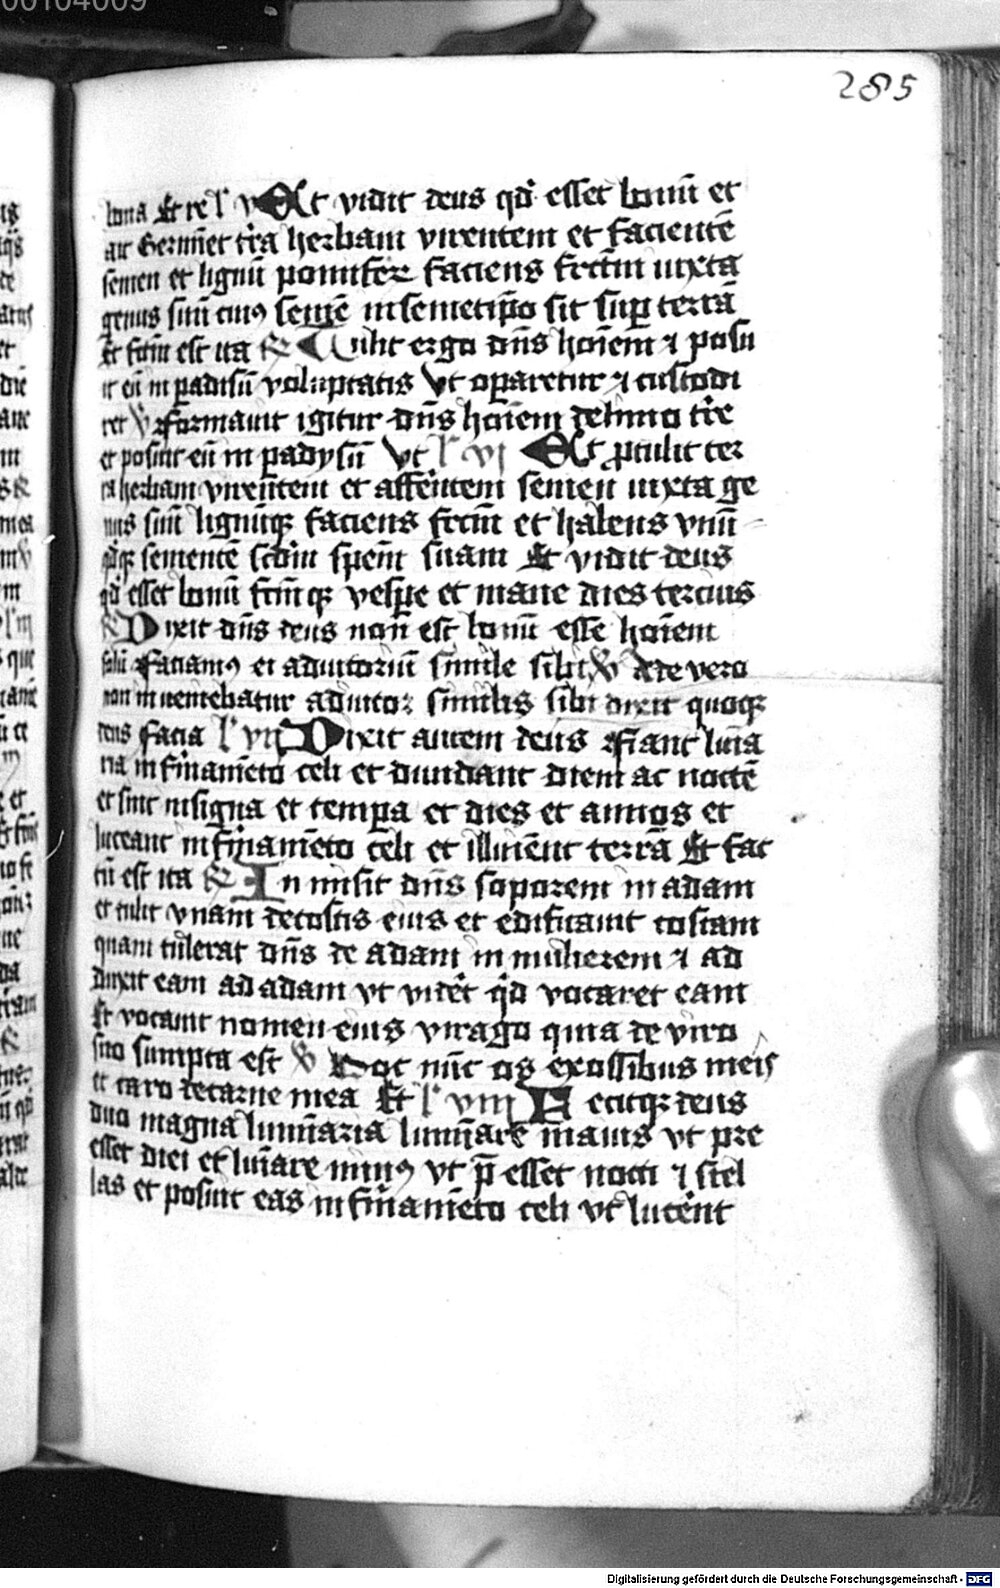 00104009
285
bona Et re l' v Et vidit deus qd' esset bonū et
ait Germiēt t'ra herbam virentem et facientē
semen et lignū pomifer faciens fr̄cm iuxta
genus suū cuiꝯ semē in semetip̄o sit sup̄ terrā
Et fc̄m est ita R Tulit ergo dn̄s hoīem ⁊ posu
it eū in padisū voluptatis Vt oparetur ⁊ custodi
ret V formauit igitur dn̄s hoīem de limo t're
et posuit eū in padysū Vt l' vj Et p̄tulit ter
ra herbam virentem et afferentem semen iuxta ge
nus suū lignūqꝫ faciens fr̄cm et habens vnū
q̄dqꝫ sementē sc̄dm spēm suam Et vidit deus
qd' esset bonū fc̄mqꝫ vesp̄e et mane dies tercius
R Dixit dn̄s deus non est bonū esse hoīem
solū faciamꝯ ei adiutoriū simile sibi V Ade vero
non inueniebatur adiutor similis sibi dixit quoqꝫ
deus facia l' vij Dixit autem deus fiant lūia
ria in firmamēto celi et diuidant diem ac noctē
et sint in signa et tempa et dies et annos et
luceant in firmamēto celi et illuīent terrā Et fac
tū est ita R In misit dn̄s soporem in adam
et tulit vnam de costis eius et edificauit costam
quam tulerat dn̄s de adam in mulierem ⁊ ad
duxit eam ad adam vt videt' q'd vocaret eam
Et vocauit nomen eius virago quia de viro
suo sumpta est V Hoc nūc os ex ossibus meis
et caro de carne mea Et l' viij Fecitqꝫ deus
duo magna luminaria lumīare maius vt pre
esset diei et luīare minꝯ vt p̄ esset nocti ⁊ stel
las et posuit eas in firmamēto celi vt lucērit
Digitalisierung gefördert durch die Deutsche Forschungsgemeinschaft - DFG